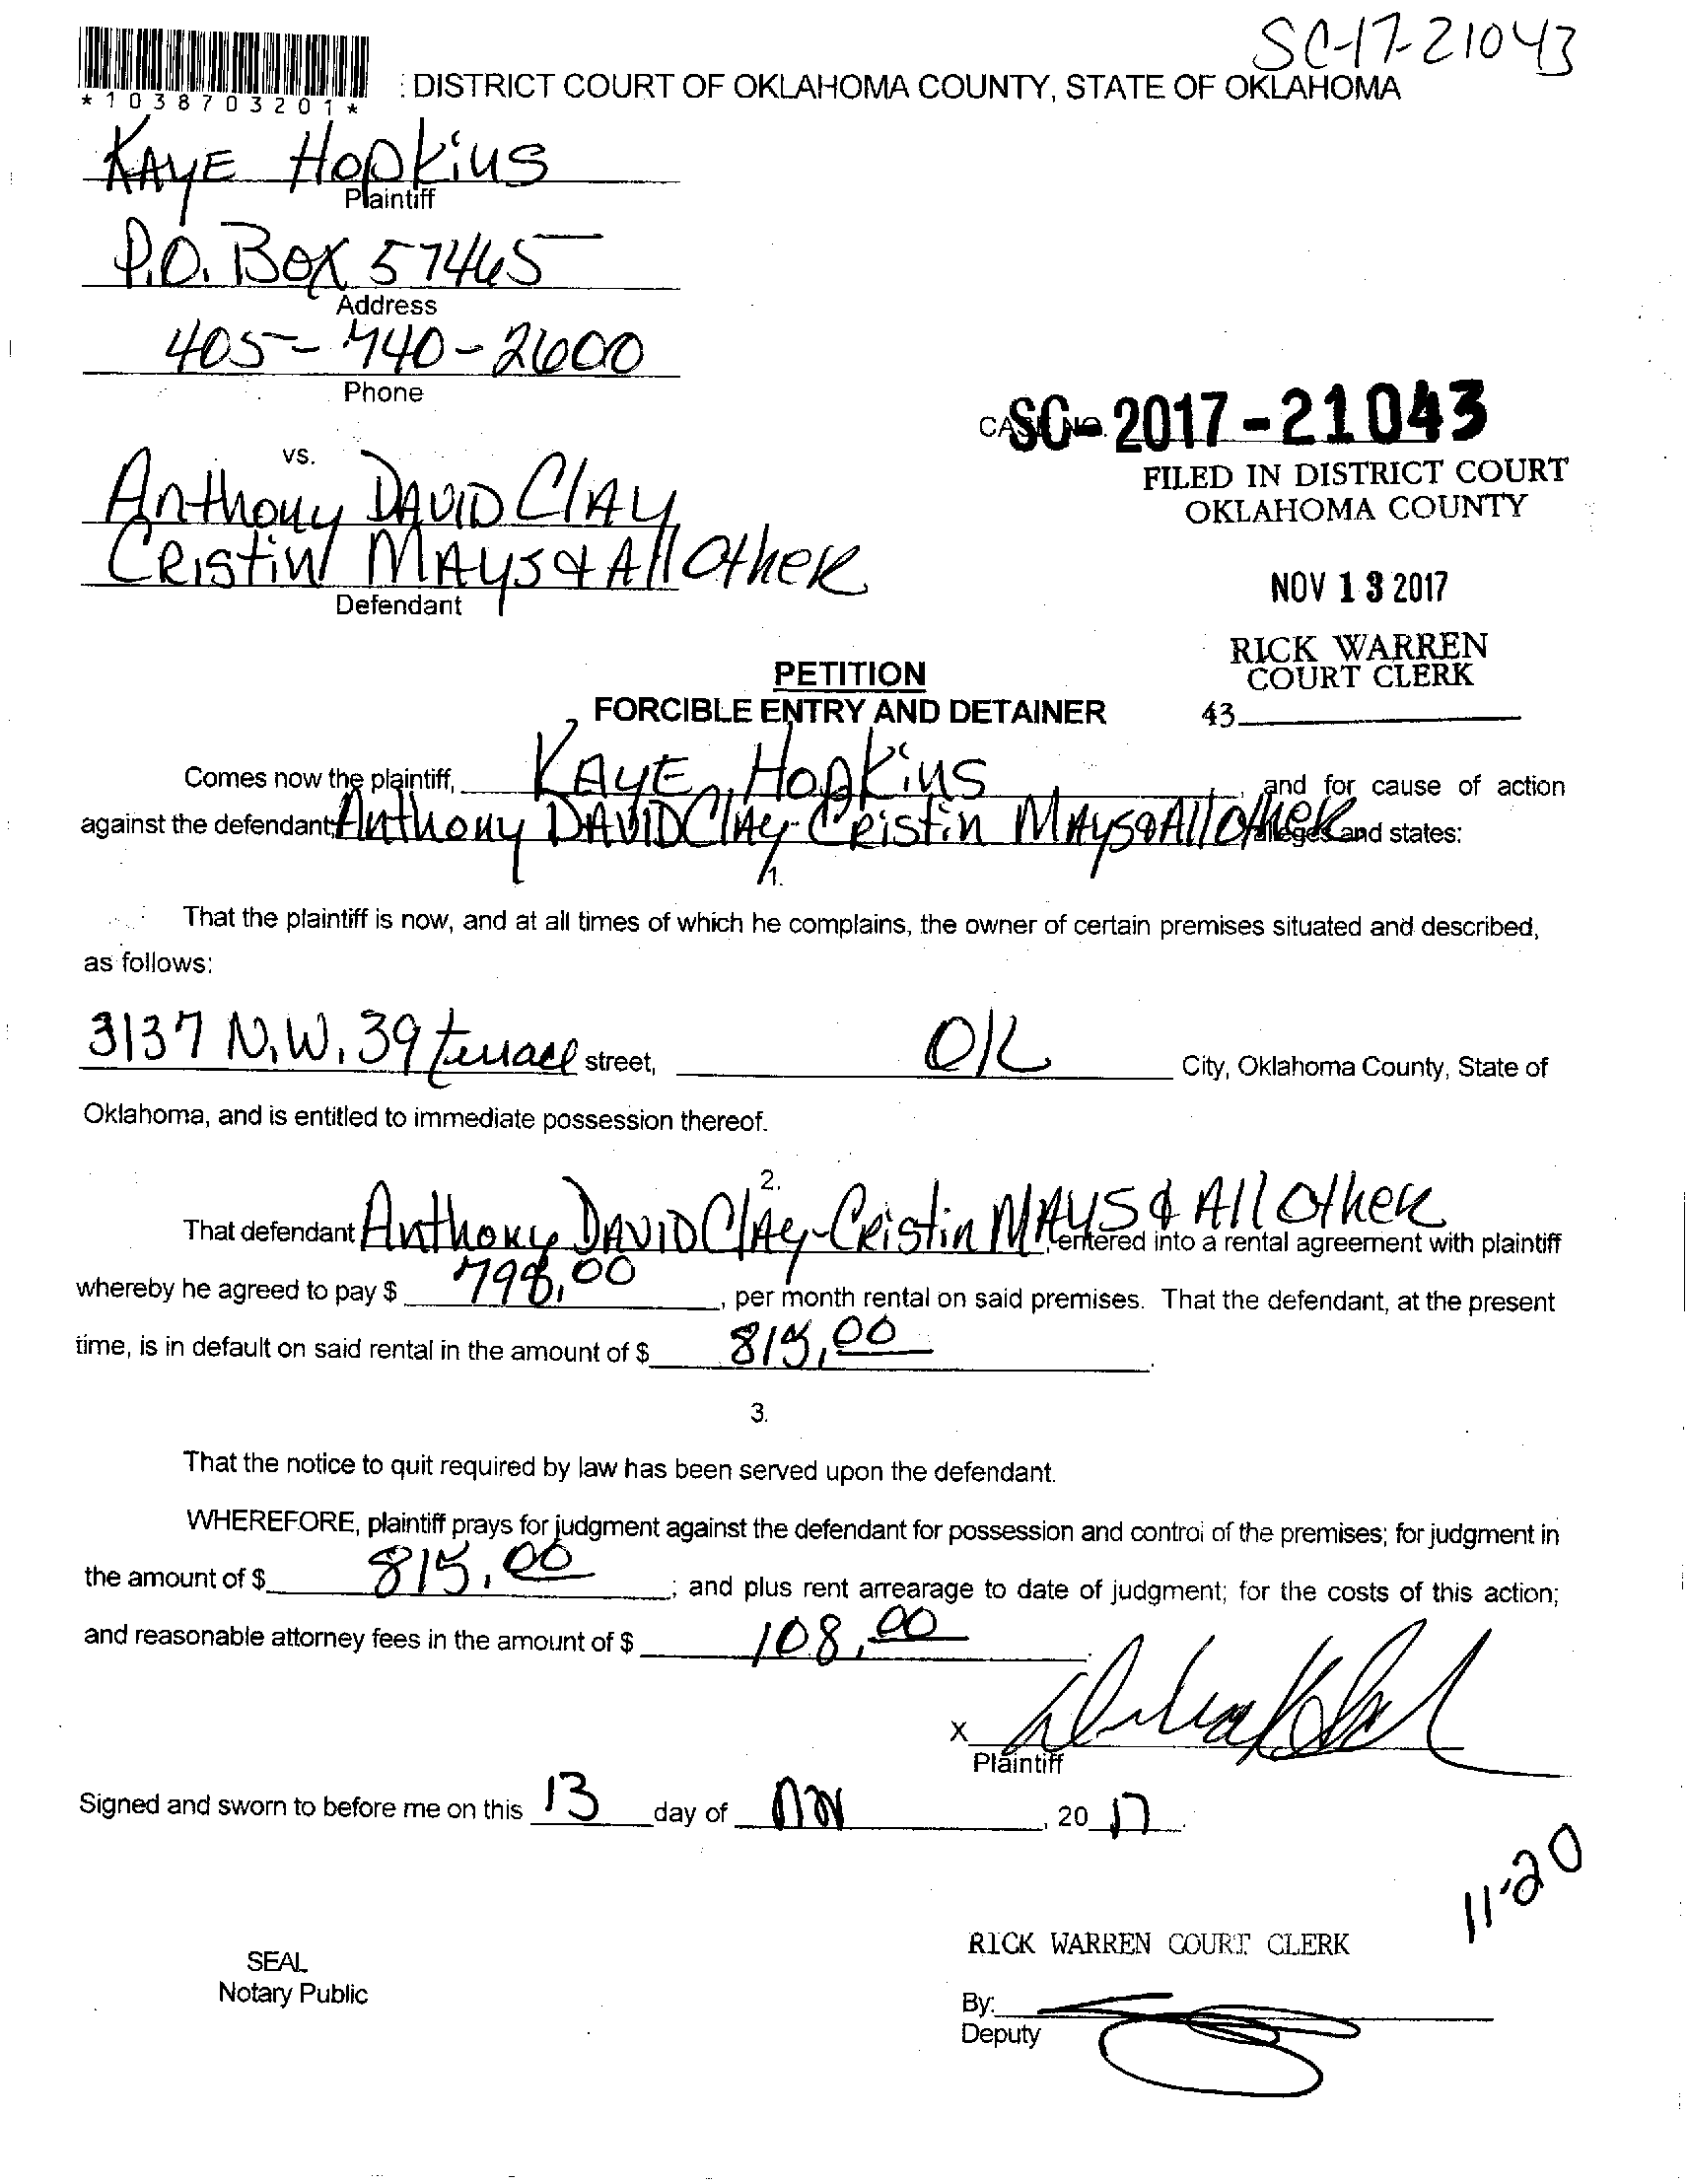 SC-17-21043
: DISTRICT COURT OF OKLAHOMA COUNTY, STATE OF OKLAHOMA
*1038703201*
KAYE Hopkins
Plaintiff
P.O. Box 57465
Address
405-740-2600
Phone
CASE NO. SC-2017-21043
FILED IN DISTRICT COURT
OKLAHOMA COUNTY
vs.
Anthony DAVID ClAy
CRistin MAys & All OtheR
Defendant
NOV 13 2017
RICK WARREN
COURT CLERK
43
PETITION
FORCIBLE ENTRY AND DETAINER
Comes now the plaintiff, KAYE Hopkins, and for cause of action
against the defendant Anthony DAVID ClAy-CRistin MAys & All OtheR alleges and states:
1.
That the plaintiff is now, and at all times of which he complains, the owner of certain premises situated and described,
as follows:
3137 N.W. 39 terrace street, OK City, Oklahoma County, State of
Oklahoma, and is entitled to immediate possession thereof.
2.
That defendant Anthony DAVID ClAy-CRistin MAYS & All OtheR, entered into a rental agreement with plaintiff
whereby he agreed to pay $ 798.00, per month rental on said premises. That the defendant, at the present
time, is in default on said rental in the amount of $ 815.00.
3.
That the notice to quit required by law has been served upon the defendant.
WHEREFORE, plaintiff prays for judgment against the defendant for possession and control of the premises; for judgment in
the amount of $ 815.00; and plus rent arrearage to date of judgment; for the costs of this action;
and reasonable attorney fees in the amount of $ 108.00.
X
Plaintiff
Signed and sworn to before me on this 13 day of Nov, 20 17.
11-20
RICK WARREN COURT CLERK
SEAL
Notary Public
By:
Deputy